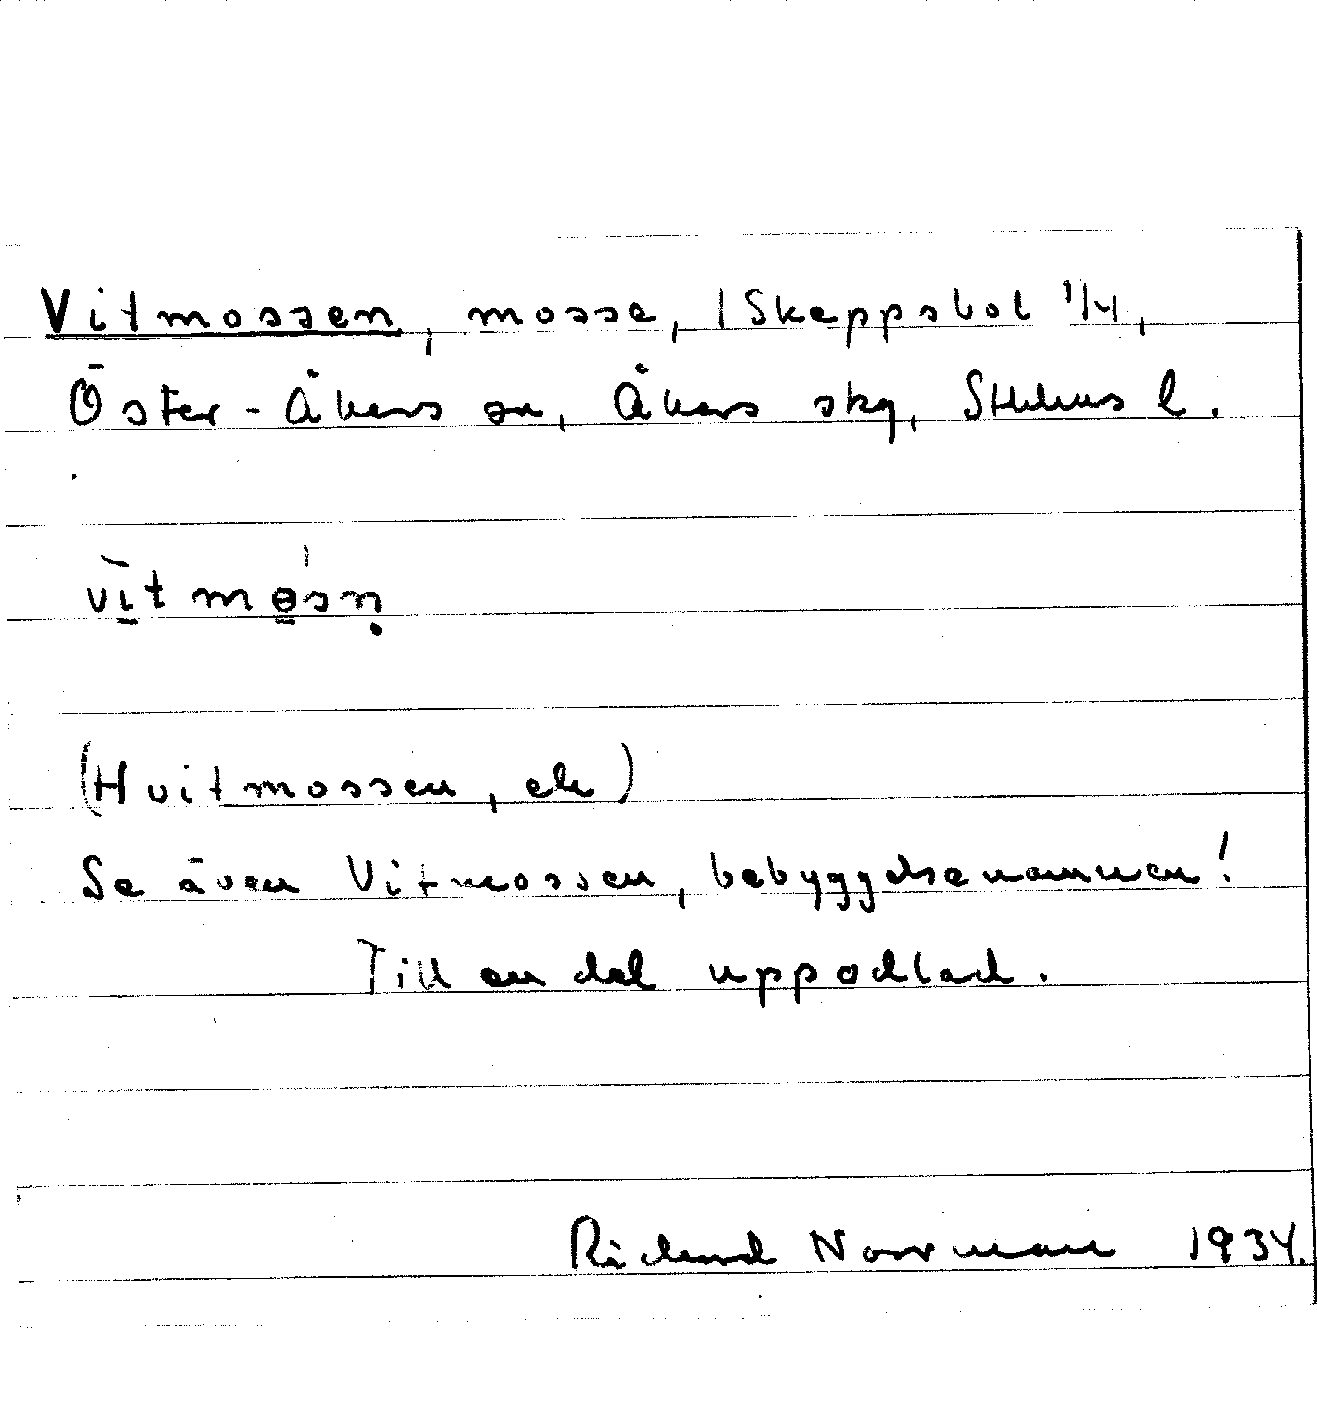 Vitmossen, mosse, 1 Skeppsbol 1/4,
Öster-Åkers sn, Åkers skg, Sthlms l.
vi̲tmɵ̲sn̥
(Hvitmossen, ek)
Se även Vitmossen, bebyggelsenamnen!
Till en del uppodlad.
Richard Norrman 1934.